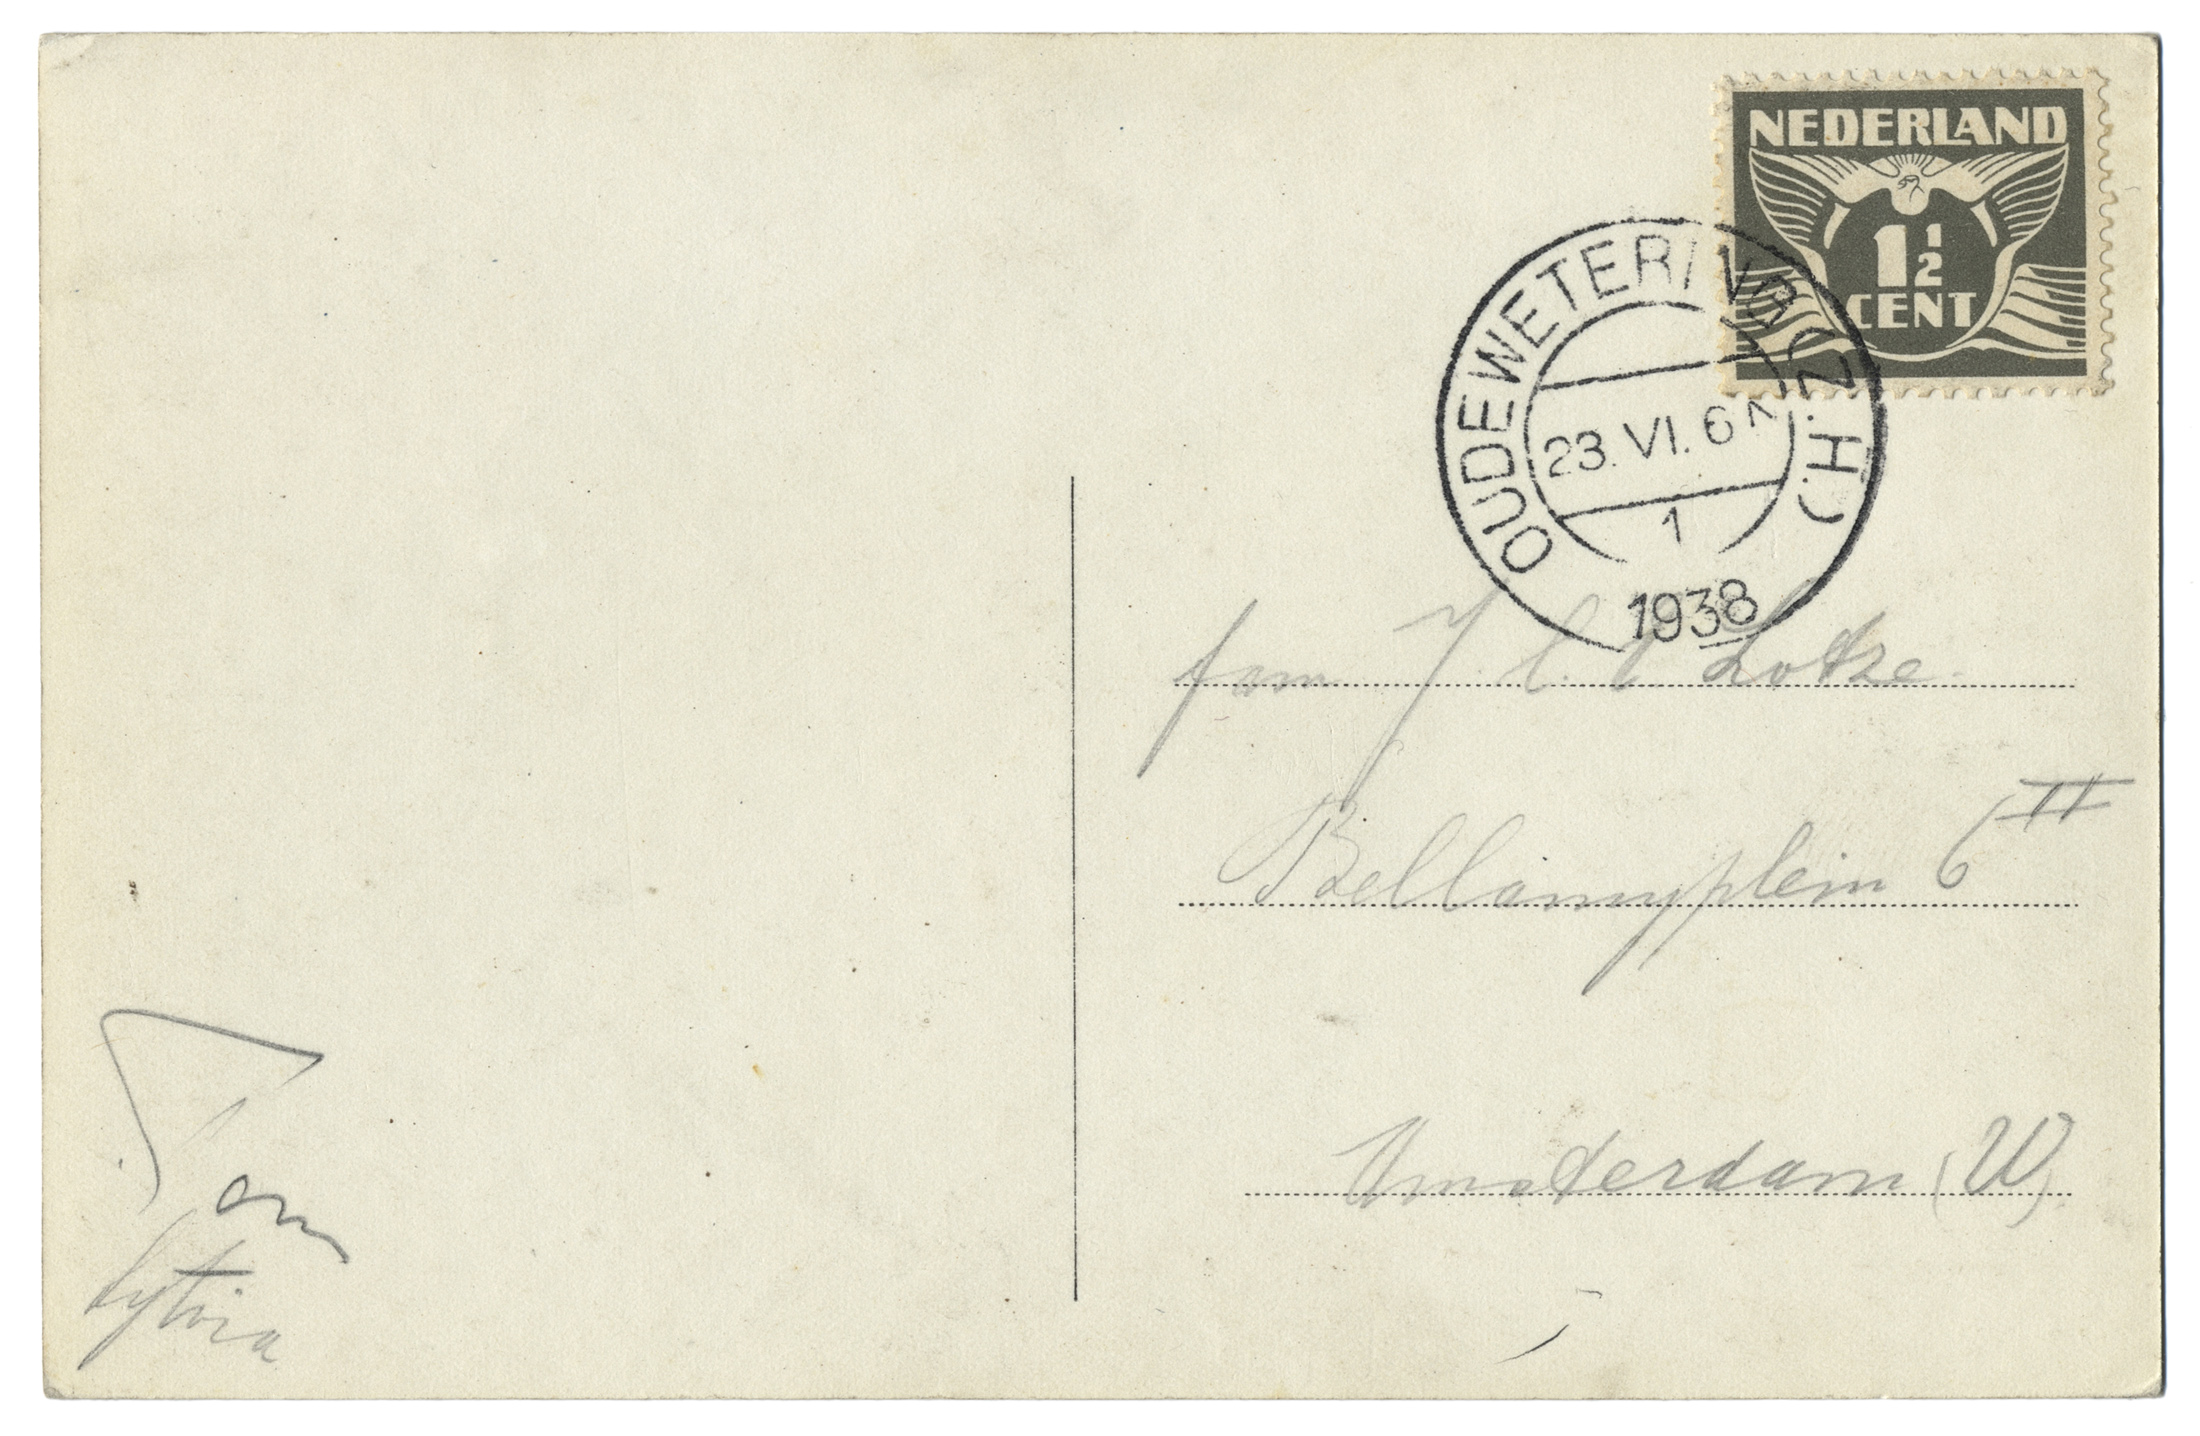 NEDERLAND
1 1/2
CENT
OUDE WETERING (Z.H.)
23.VI.6 N
1
1938
fam J. C. C. Lotze.
Bellamyplein 6 II
Amsterdam (W)
Tom